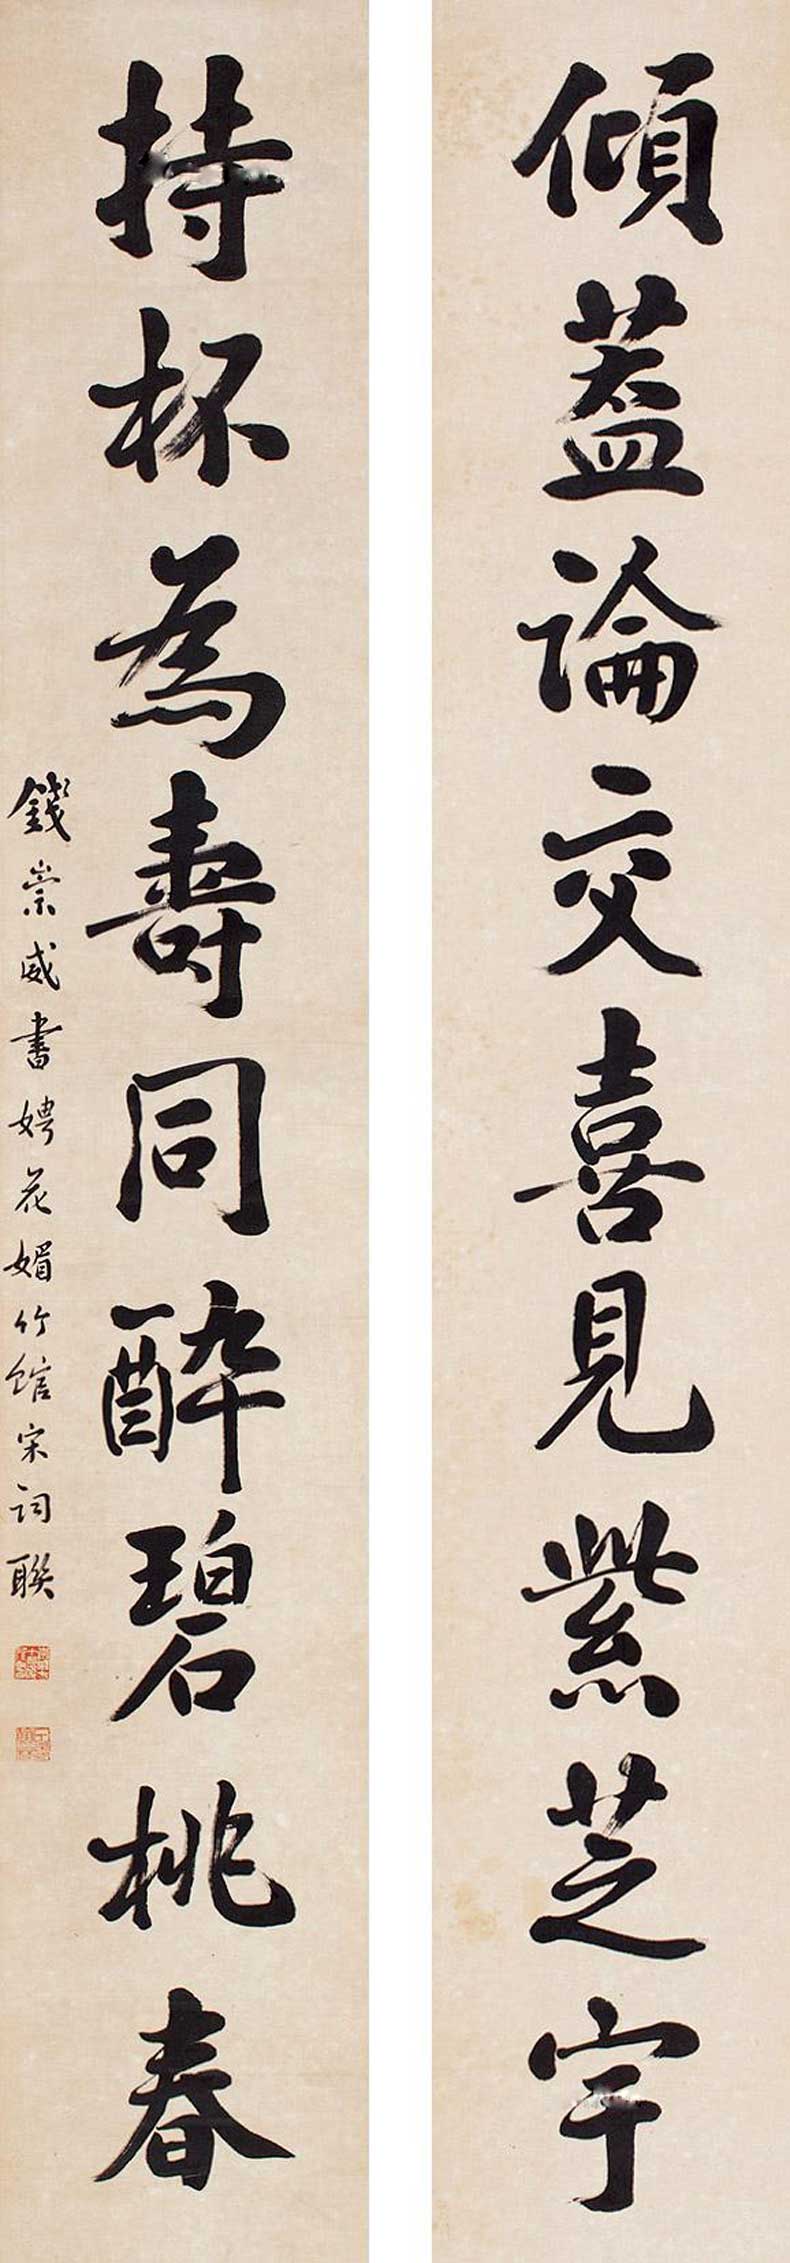 傾葢論交喜見紫芝宇
持杯為壽同醉碧桃春
錢崇威書娉花媚竹館宋詞聯